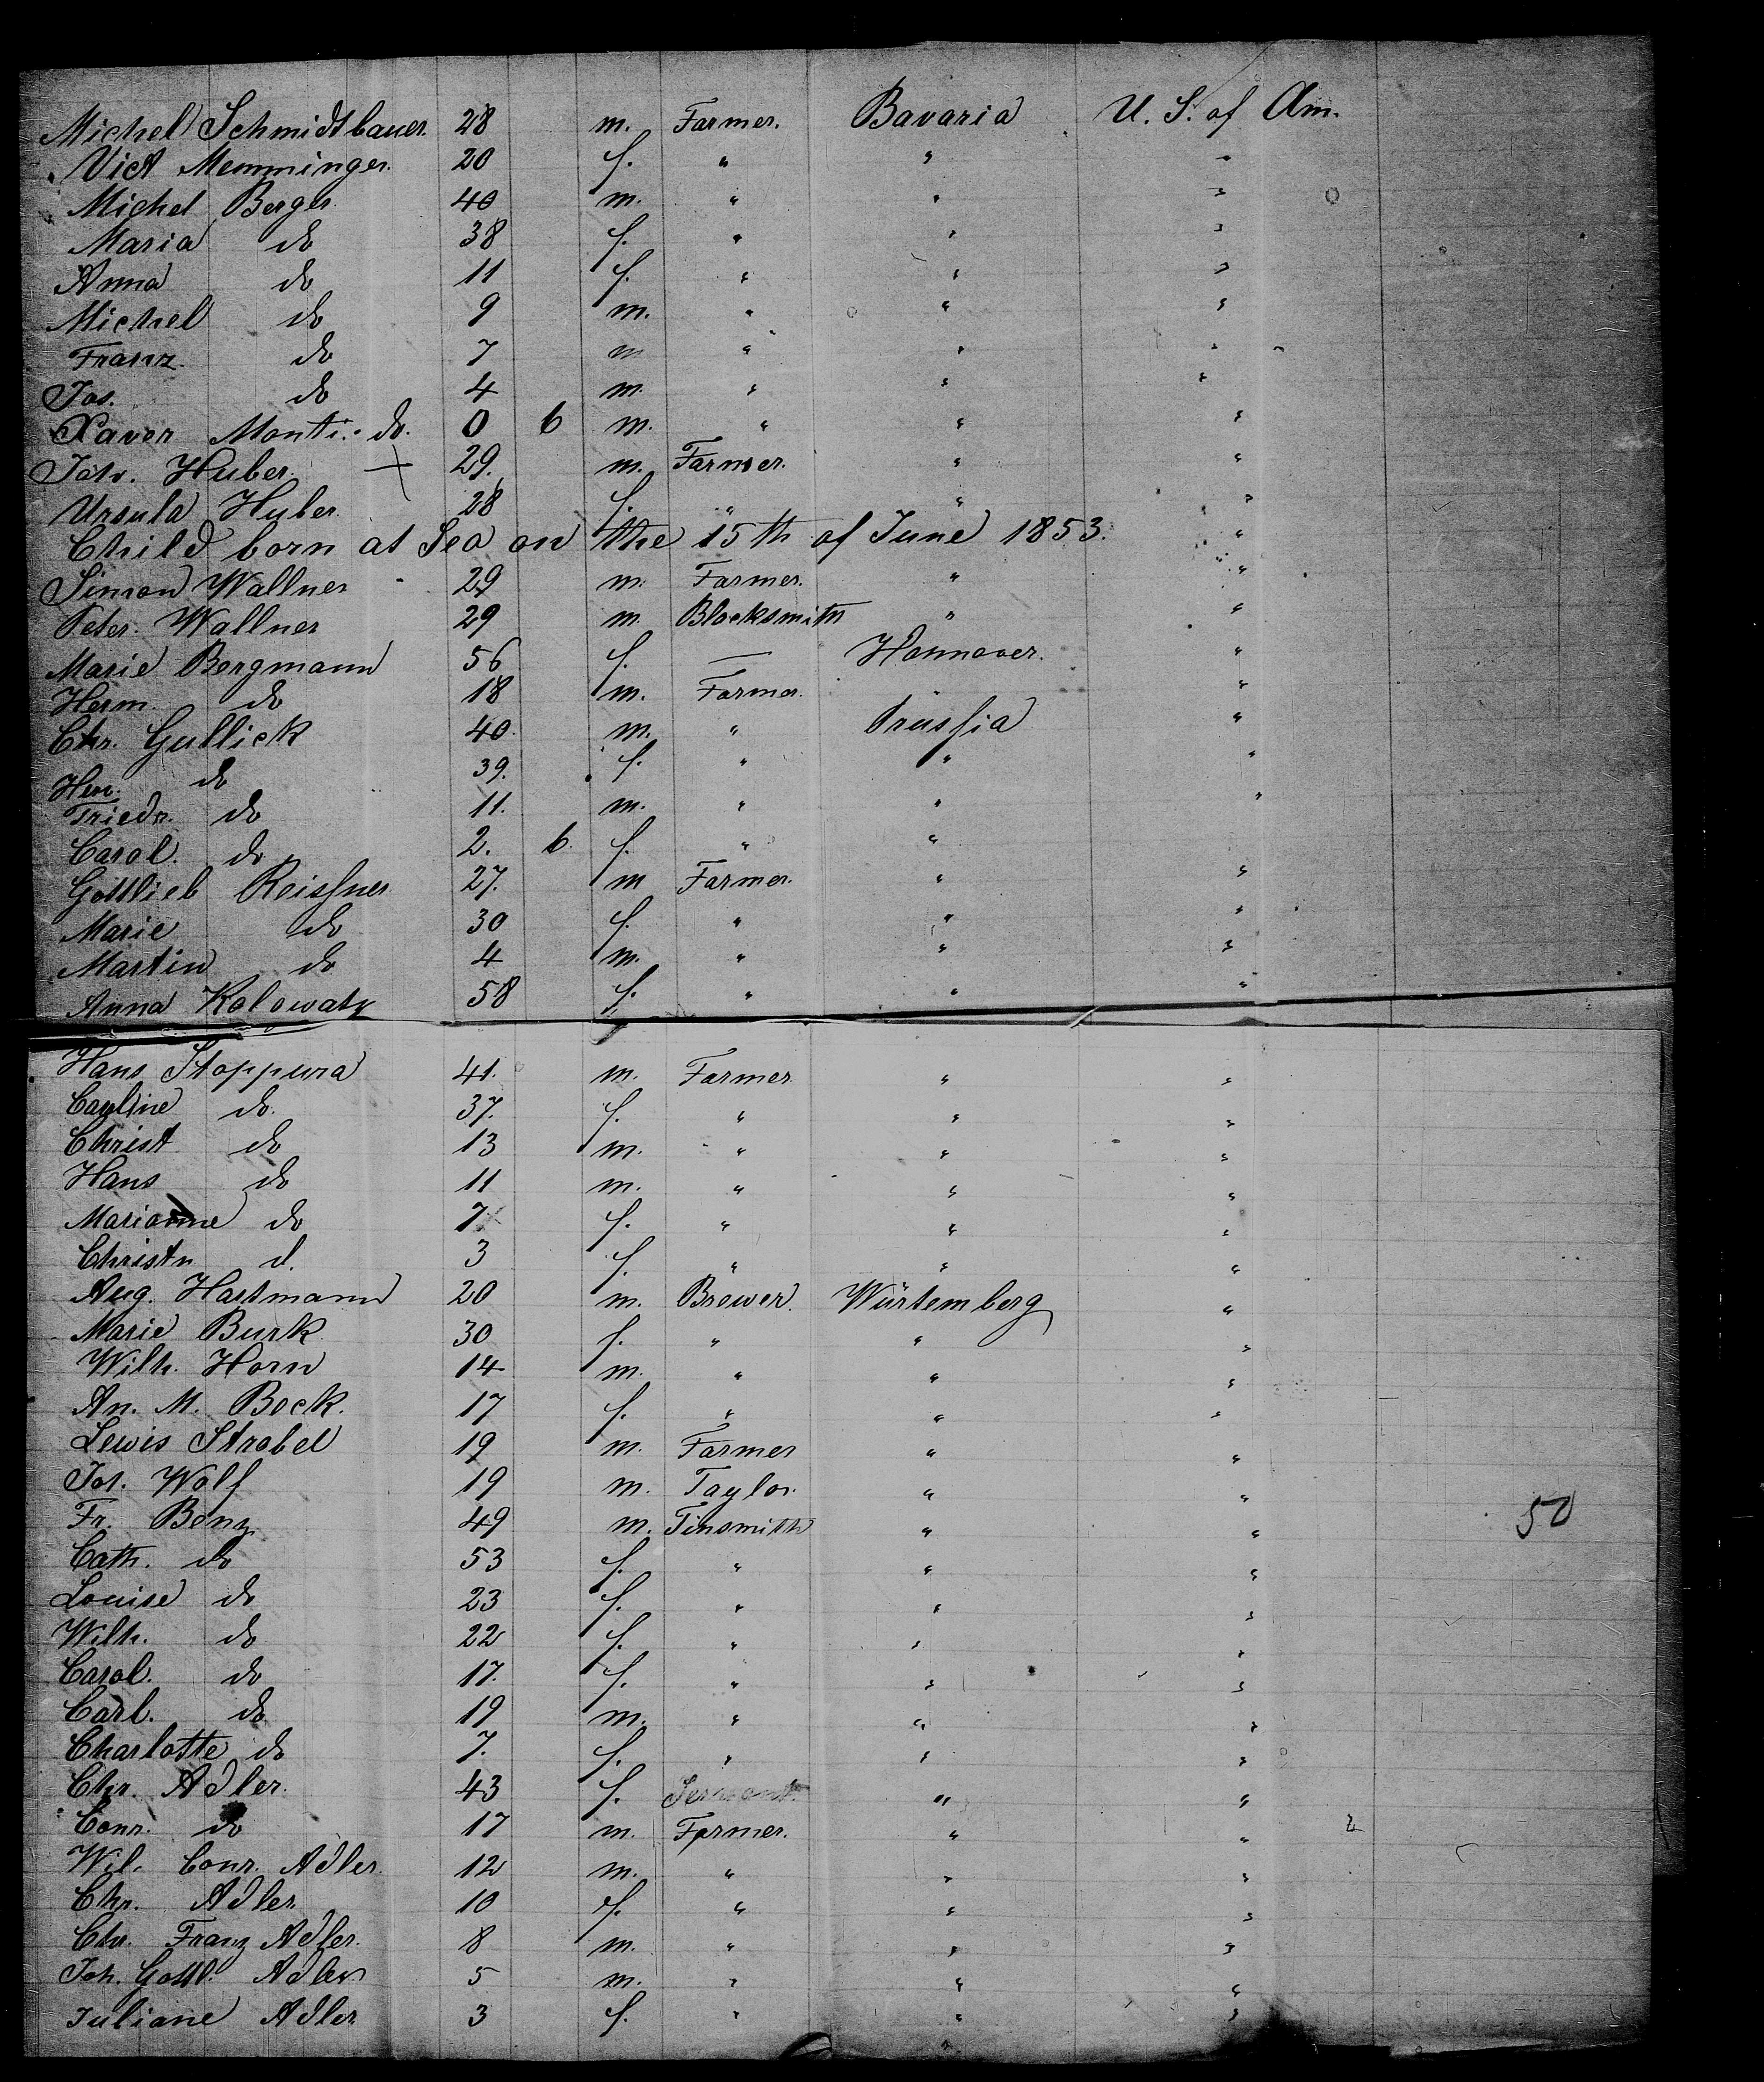 Michel Schmidtbauer 28 m. Farmer. Bavaria U. S. of Am.
Vict Memminger. 20 f. " " "
Michel Berger 40 m. " " "
Maria do 38 f. " " "
Anna do 11 f. " " "
Michel do 9 m. " " "
Franz do 7 m " " "
Jos. do 4 m. " " "
Xaver Monti. do. 0 6 m. " " "
Joh. Huber + 29. m. Farmer. " "
Ursula Huber 28 f. " " "
Child born at Sea on the 15th of June 1853. "
Simon Wallner 29 m. Farmer. " "
Peter. Wallner 29 m. Blacksmith " "
Marie Bergmann 56 f. — Hannover. "
Herm. do 18 m. Farmer. " "
Chr. Gullick 40. m. " Prussia "
Hen. do 39. f. " " "
Friedr. do 11. m. " " "
Carol. do 2. 6 f. " "
Gottlieb Reissner 27. m Farmer. " "
Marie do 30 f. " " "
Martin do 4 m. " " "
Anna Kolowaty 58 f. " " "
Hans Stoppura 41. m. Farmer " "
Cauline do. 37. f. " " "
Christ do 13 m. " " "
Hans do 11 m. " " "
Marianne do 7 f. " " "
Christn d. 3 f. " " "
Aug. Hartmann 20 m. Brewer. Würtemberg "
Marie Burk 30 f. " " "
Wilh. Horn 14 m. " " "
An. M. Bock. 17 f. " " "
Lewis Strobel 19 m. Farmer " "
Jos. Wolf 19 m. Taylor. " "
Fr. Benz 49 m. Tinsmith " " 50
Cath. do 53 f. " " "
Louise do 23 f. " " "
Wilh. do 22 f. " " "
Carol. do 17. f. " " "
Carl. do 19 m. " " "
Charlotte do 7. f. " " "
Chr. Adler 43 f. Servant. " "
Conr. do 17 m. Farmer. " "
Wil. Conr. Adler 12 m. " " "
Chr. Adler 10 f. " " "
Chr. Franz Adler. 8 m. " " "
Joh. Gottl. Adler 5 m. " " "
Juliane Adler 3 f. " " "